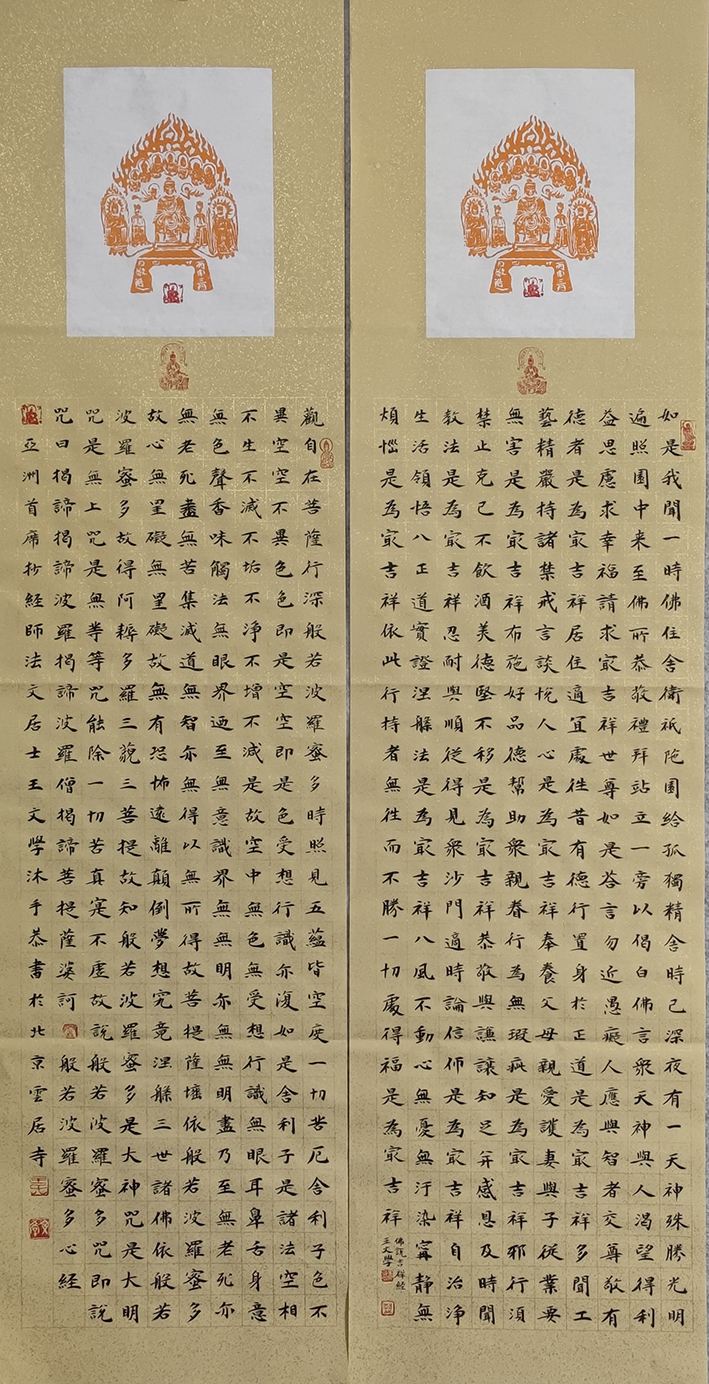 如是我聞一時佛住舍衛祇陀園給孤獨精舍時已深夜有一天神殊勝光明
遍照園中来至佛所恭敬禮拜站立一旁以偈白佛言眾天神與人渴望得利
益思慮求幸福請求㝡吉祥世尊如是答言勿近愚癡人應與智者交尊敬有
德者是為㝡吉祥居住適宜處往昔有德行置身於正道是為㝡吉祥多聞工
藝精嚴持諸禁戒言談悅人心是為㝡吉祥奉養父母親愛護妻與子從業要
無害是為㝡吉祥布施好品德幫助眾親眷行為無瑕疵是為㝡吉祥邪行須
禁止克己不飲酒美德堅不移是為㝡吉祥恭敬與謙讓知足并感恩及時聞
教法是為㝡吉祥忍耐與順從得見眾沙門適時論信仰是為㝡吉祥自治淨
生活領悟八正道實證涅槃法是為㝡吉祥八風不動心無憂無汙染寧靜無
煩惱是為㝡吉祥依此行持者無往而不勝一切處得福是為㝡吉祥
佛說吉祥經
王文學
觀自在菩薩行深般若波羅蜜多時照見五蘊皆空度一切苦厄舍利子色不
異空空不異色色即是空空即是色受想行識亦復如是舍利子是諸法空相
不生不滅不垢不淨不增不減是故空中無色無受想行識無眼耳鼻舌身意
無色聲香味觸法無眼界迺至無意識界無無明亦無無明盡乃至無老死亦
無老死盡無苦集滅道無智亦無得以無所得故菩提薩埵依般若波羅蜜多
故心無罣礙無罣礙故無有恐怖遠離顛倒夢想究竟涅槃三世諸佛依般若
波羅蜜多故得阿耨多羅三藐三菩提故知般若波羅蜜多是大神咒是大明
咒是無上咒是無等等咒能除一切苦真寔不虛故說般若波羅蜜多咒即說
咒曰揭諦揭諦波羅揭諦波羅僧揭諦菩提薩婆訶 般若波羅蜜多心經
亞洲首席抄經師法文居士王文學沐手恭書於北京雲居寺